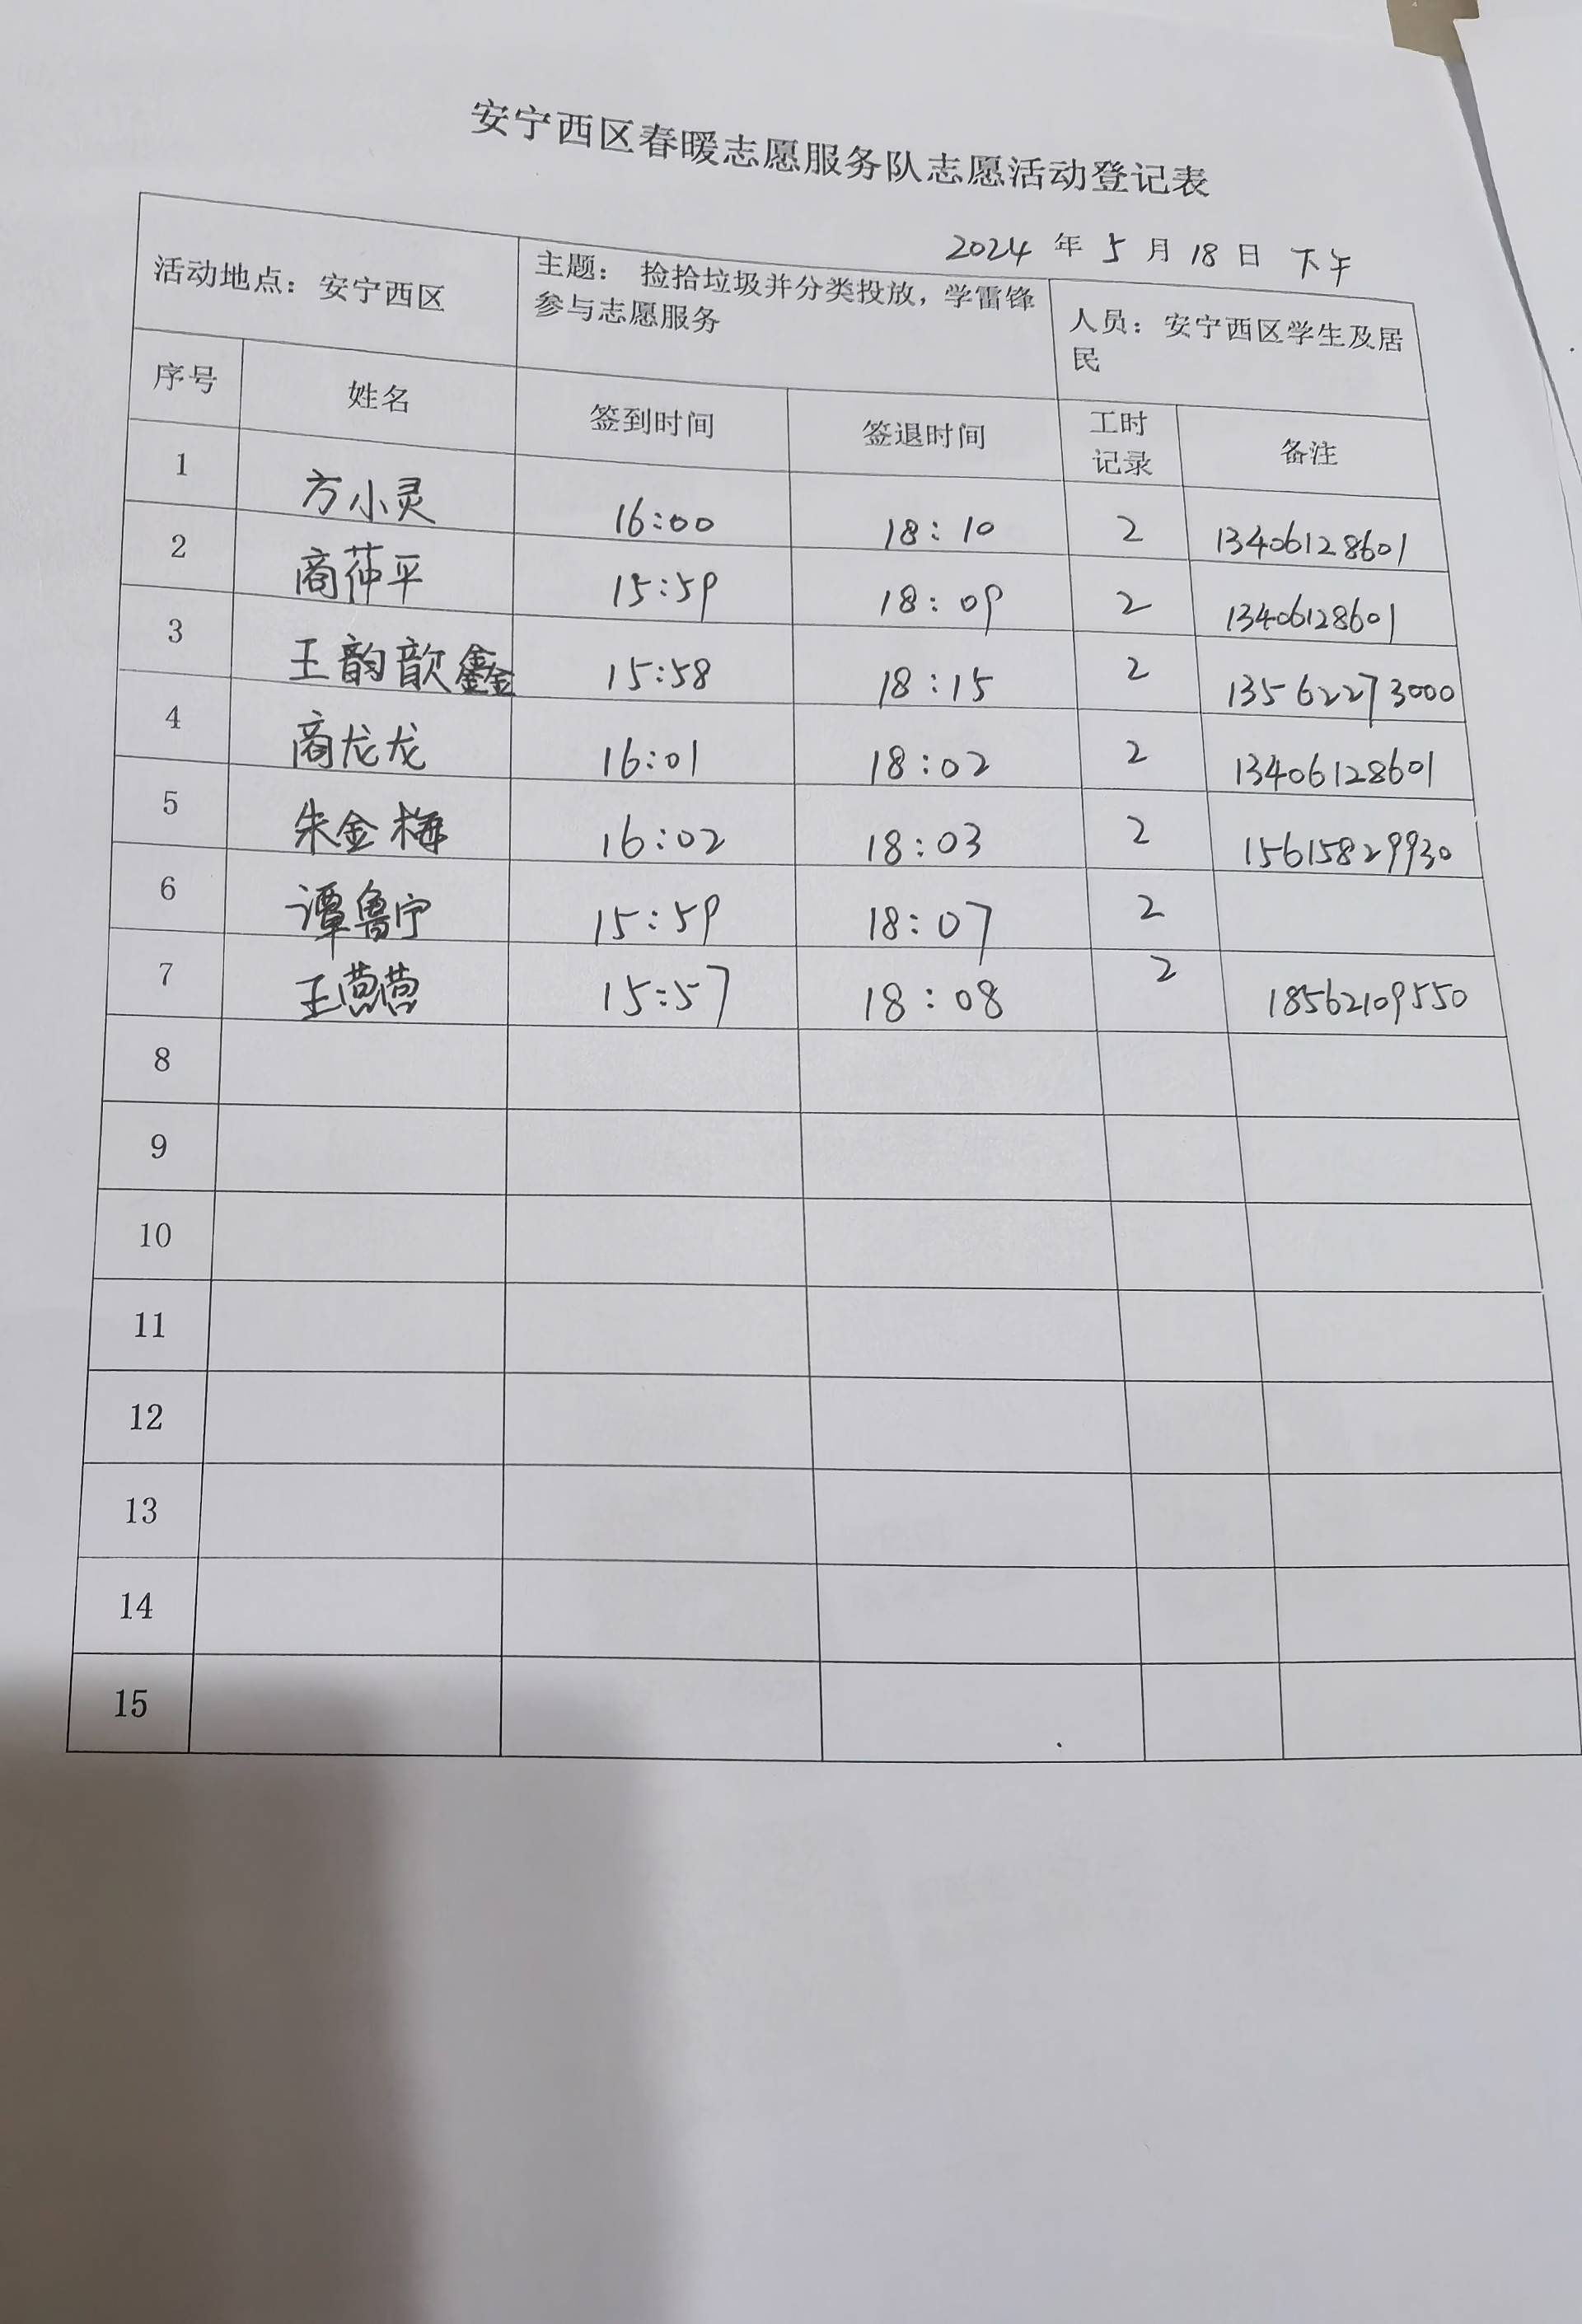 安宁西区春暖志愿服务队志愿活动登记表
2024 年 5 月 18 日 下午
活动地点：安宁西区
主题： 捡拾垃圾并分类投放，学雷锋
参与志愿服务
人员：安宁西区学生及居
民
序号 姓名 签到时间 签退时间 工时 备注
记录
1 方小灵 16:00 18:10 2 13406128601
2 商茽平 15:59 18:09 2 13406128601
3 王韵歆鑫 15:58 18:15 2 13562273000
4 商龙龙 16:01 18:02 2 13406128601
5 朱金梅 16:02 18:03 2 15615829930
6 谭鲁宁 15:59 18:07 2
7 王 15:57 18:08 2 18562109550
8
9
10
11
12
13
14
15